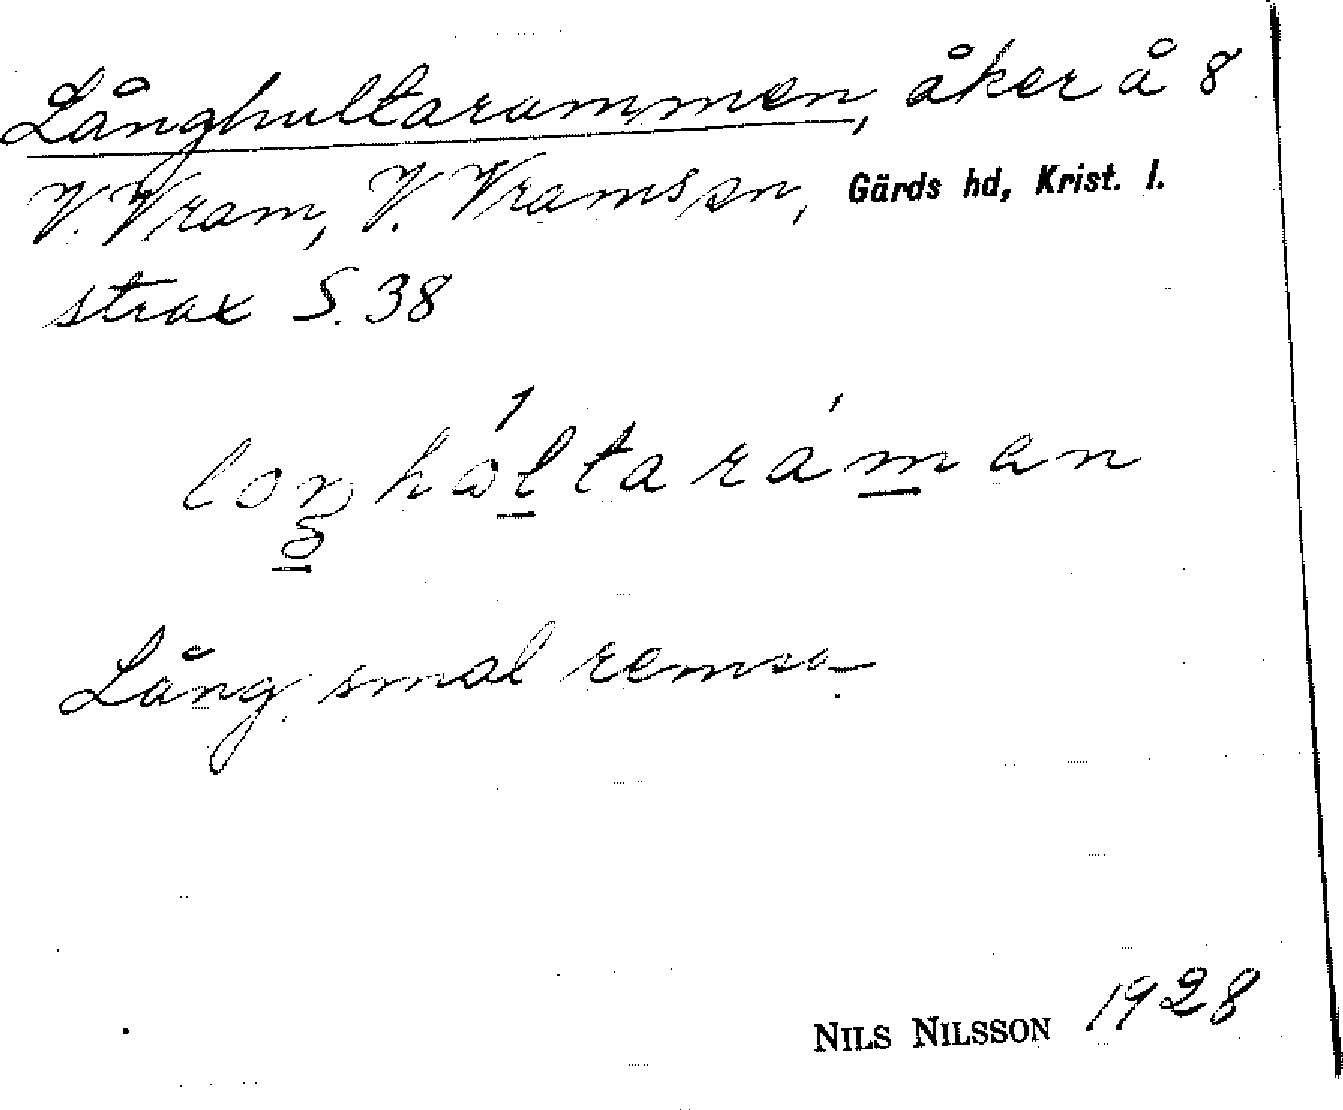 Långhultarammen, åker å 8
V. Vram, V. Vrams sn, Gärds hd, Krist. l.
strax S. 38
Lång smal remsa
NILS NILSSON 1928